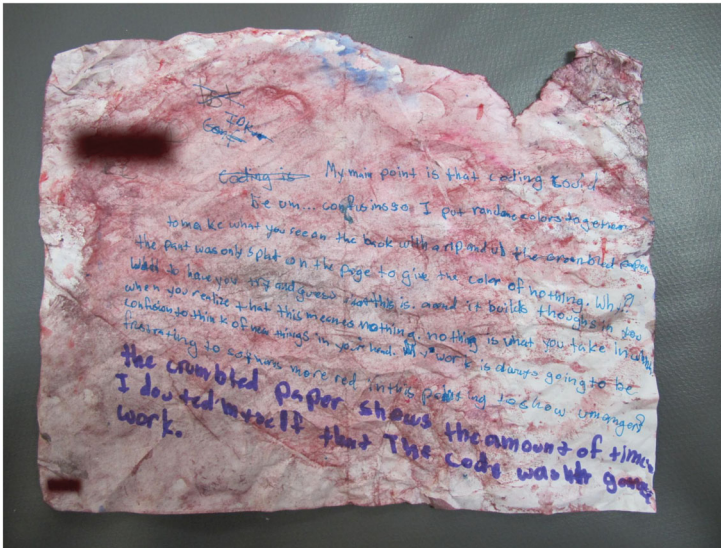 IDK
Coding is My main point is that coding could
be um... confusing so I put random colors together
to make what you see on the back with a rip and the crumbled papers
the paint was only splat on the page to give the color of nothing. Wh
want to have you try and guess what this is. and it builds thoughts in you
when you realize that this means nothing. nothing is what you take in when
confusion to think of new things in your head. My work is always going to be
frustrating to so theres more red in this painting to show um anger
the crumbled paper shows the amount of times
I douted mtself that The code wasnt gonna
work.